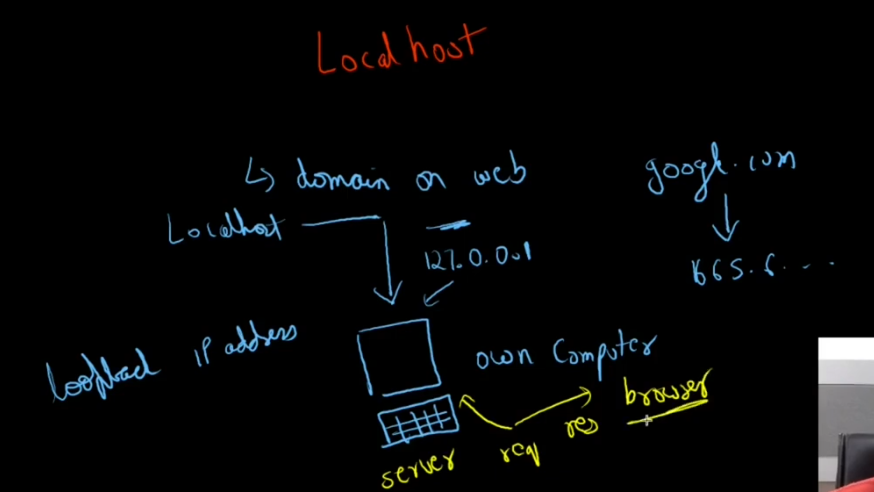 Localhost
↳ domain on web
google.com
Localhost
127.0.0.1
665.6....
loopback IP address
own Computer
browser
server req res